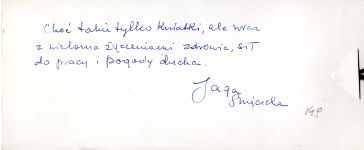 Choć takie tylko kwiatki, ale wraz
z wieloma życzeniami zdrowia, sił
do pracy i pogody ducha.
Jaga
149